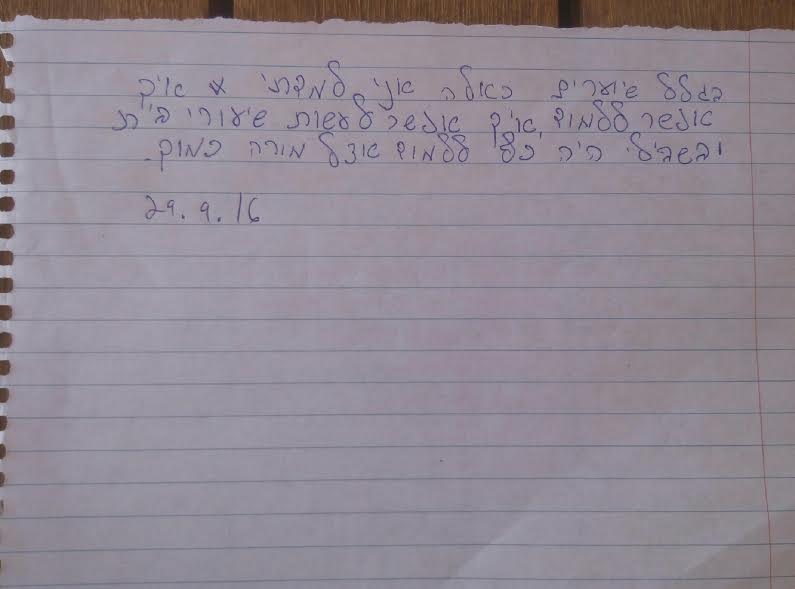 בגלל שיעורים כאלה אני למדתי איך
אפשר ללמוד, איך אפשר לעשות שיעורי בית
ובשבילי היה כיף ללמוד אצל מורה כמוך.
29.9.16